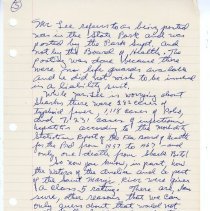 5
Mr Lee refers to as being posted
was in the State Park and was
posted by the Park Supt. and
not by the Board of Health. The
posting was done because there
were no life guards available
and he did not wish to be involved
in a liability suit.
While Mr. Lee is worrying about
Sharks there were 283 cases of
Typhoid fever, 1,118 cases of Polio
and 7,231 cases of infectious
hepatitis according to the
Statistics Report of the
for the Period from 1957 to 1967 - and
only one death from Shark bite!
So now you know, in part, how
the Waters of the and a part of
the Saint Marys River were given
a Class 5 rating. There are, I am
sure, other reasons that we can
only guess about that would not